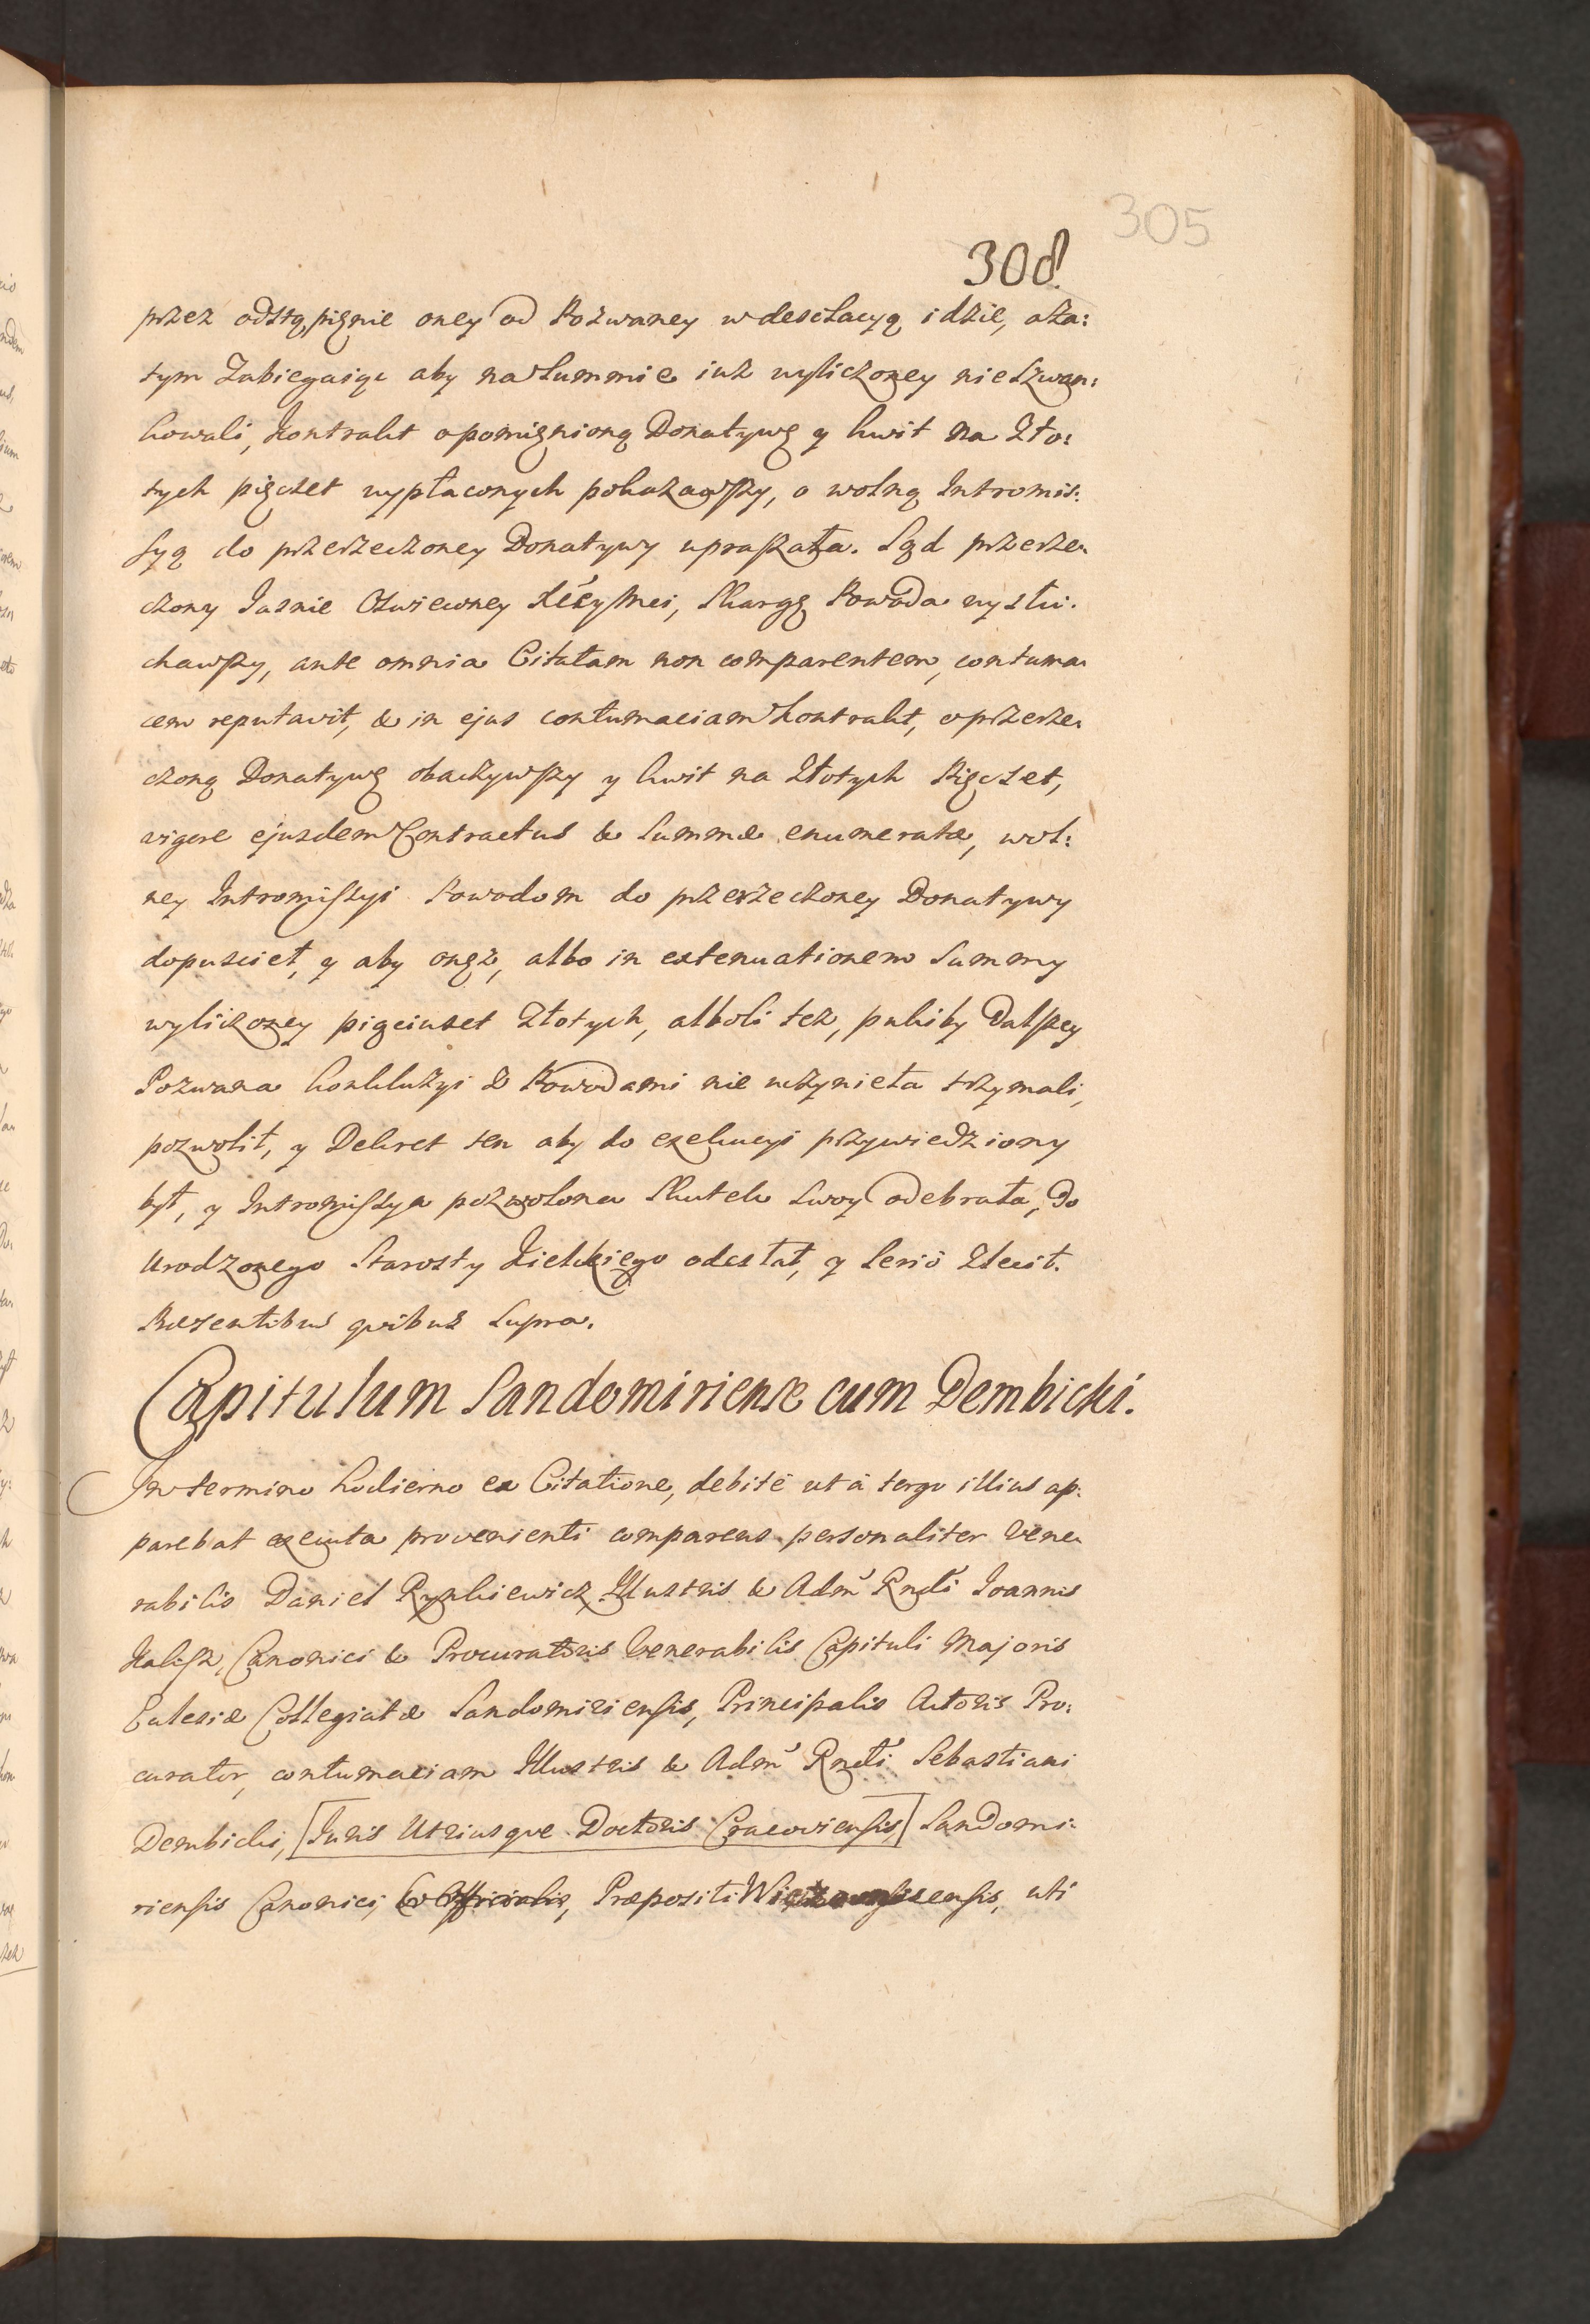 305
308.
przez odstąpięnie oney od Pozwaney w desolacyą idzie, aza:
tym Zabiegaiąc aby na Summie iuż wyliczoney nie Szwan:
kowali, Kontrakt o pomięnioną Donatywę y kwit na Zło:
tych pięcset wypłaconych pokazawszy, o wolną Intromis:
syą do przerzeczoney Donatywy upraszała. Sąd przerze„
czony Jasnie Oswieconey Xcéy Mci, Skargę Powoda wysłu:
chawszy, ante omnia Citatam non comparentem, contuma„
cem reputavit, & in ejus contumaciam Kontrakt, o przerze„
czoną Donatywę obaczywszy y kwit na Złotych Pięcset,
vigore ejusdem Contractus & Summæ enumeratæ, wol:
ney Intromissyi Powodom do przerzeczoney Donatywy
dopuscieł, y aby onęż, albo in extenuationem Summy
wyliczoney pięciuset Złotych, alboli tez, pukiby Dalszey
Pozwana konkluzyi z Powodami nie uczynieła trzymali,
pozwolił, y Dekret ten aby do exekucyi przywiedziony
był, y Intromissya pozwolona Skutek Swoy odebrała, Do
Urodzonego Starosty Kielckięgo odesłał, y Seriò Zlecił.
Præsentibus quibus Supra.
Capitulum Sandomiriense cum Dembicki.
In termino hodierno ex Citatione, debitè ut à tergo illius ap:
parebat executa provenienti comparens personaliter Vene„
rabilis Daniel Rynkiewicz, Illustris & Adm̃ Rndi Joannis
Kalisz, Canonici & Procuratoris Venerabilis Capituli Majoris
Eclesiæ Collegiatæ Sandomiriensis, Principalis Actoris Pro:
curator, contumaciam Illustris & Adm̃ Rndi Sebastiani
Dembicki, [Juris Utriusque Doctoris Cracoviensis] Sandomi:
riensis Canonici, & Officialis, Præpositi ensis, uti